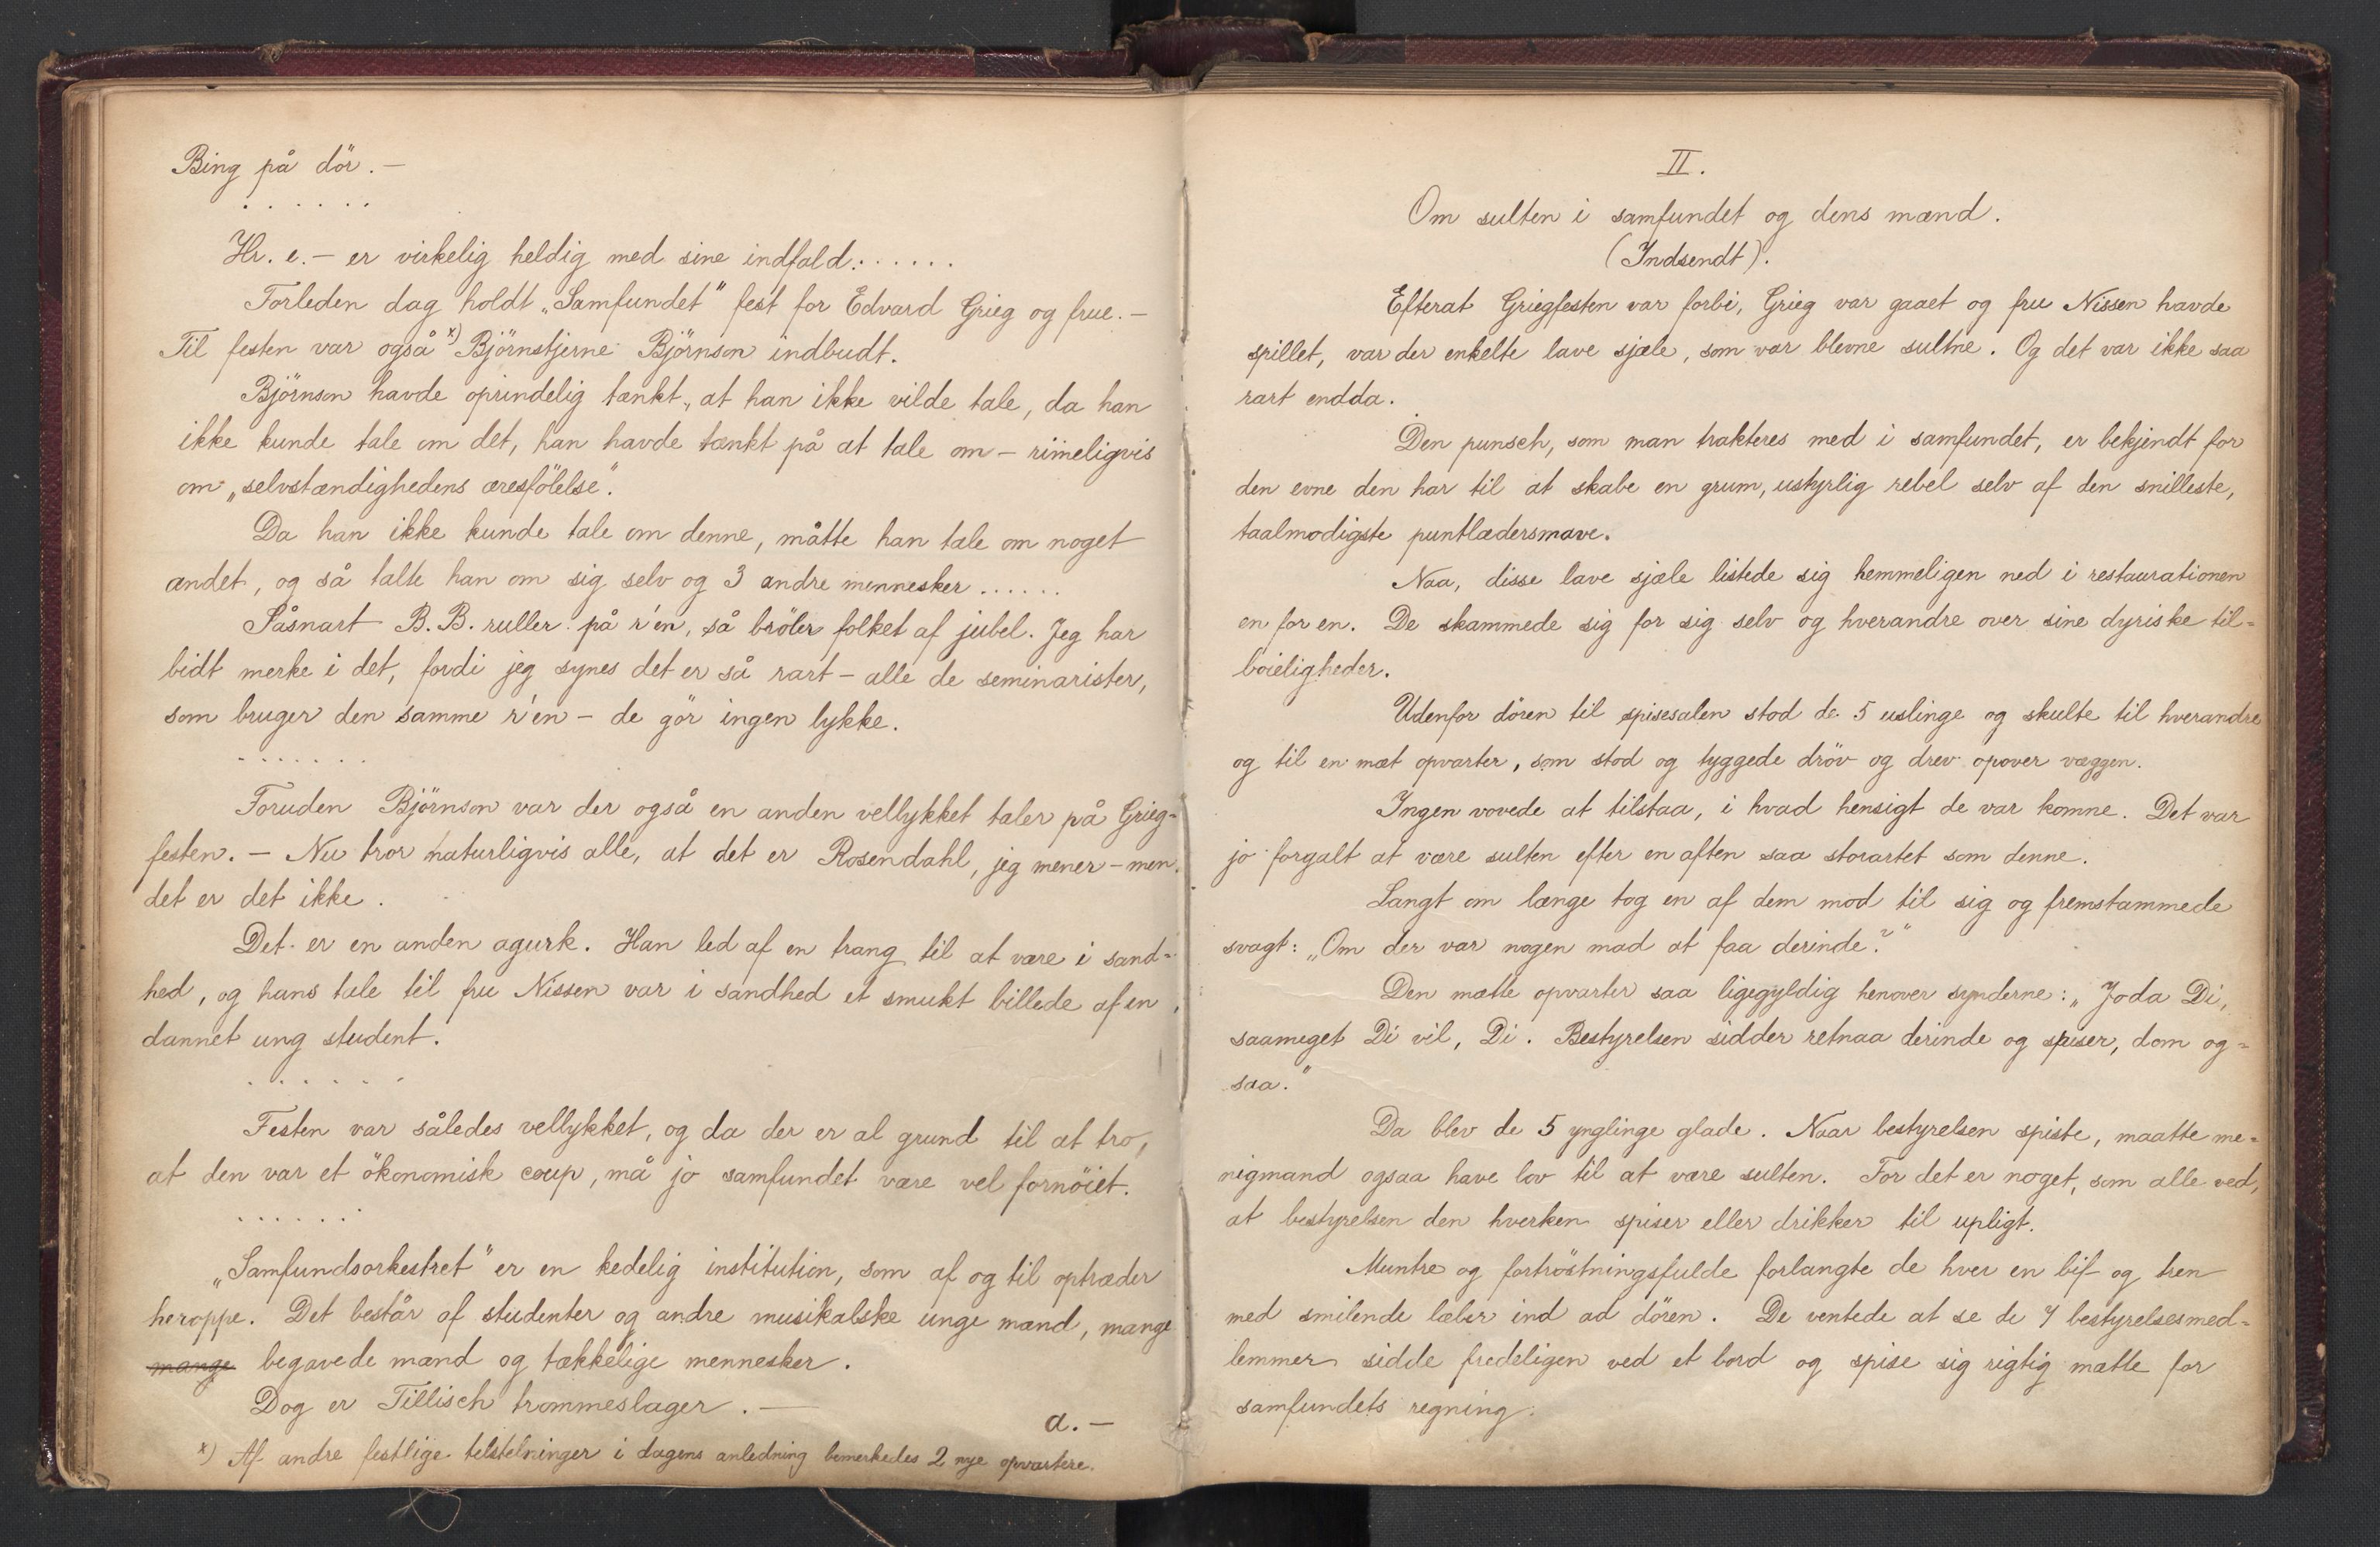 Bing på dör. —
. . . . . .
Hr. e. — er virkelig heldig med sine indfald. . . . . .
Forleden dag holdt „Samfundet" fest for Edvard Grieg og frue. —
Til festen var også x) Björnstjerne Björnson indbudt.
Björnson havde oprindelig tænkt, at han ikke vilde tale, da han
ikke kunde tale om det, han havde tænkt på at tale om — rimeligvis
om „selvstændighedens æresfölelse".
Da han ikke kunde tale om denne, måtte han tale om noget
andet, og så talte han om sig selv og 3 andre mennesker . . . . . .
Såsnart B. B. ruller på r'en, så bröler folket af jubel. Jeg har
bidt merke i det, fordi jeg synes det er så rart — alle de seminarister,
som bruger den samme r'en — de gör ingen lykke.
. . . . . . .
Foruden Björnson var der også en anden vellykket taler på Grieg-
festen. — Nu tror naturligvis alle, at det er Rosendahl, jeg mener — men
det er det ikke.
Det er en anden agurk. Han led af en trang til at være i sand-
hed, og hans tale til fru Nissen var i sandhed et smukt billede af en
dannet ung student.
. . . . . . .
Festen var således vellykket, og da der er al grund til at tro,
at den var et ökonomisk coup, må jo samfundet være vel fornöiet.
. . . . . .
„Samfundsorkestret" er en kedelig institution, som af og til optræder
heroppe. Det består af studenter og andre musikalske unge mænd, mange
mange begavede mænd og tækkelige mennesker.
Dog er Tillisch trommeslager. —
a. —
x) Af andre festlige telstelninger i dagens anledning bemerkedes 2 nye opvartere.
II.
Om sulten i samfundet og dens mænd.
(Indsendt).
Efterat Griegfesten var forbi, Grieg var gaaet og fru Nissen havde
spillet, var der enkelte lave sjæle, som var blevne sultne. Og det var ikke saa
rart endda.
Den punsch, som man trakteres med i samfundet, er bekjendt for
den evne den har til at skabe en grum, ustyrlig rebel selv af den snilleste,
taalmodigste puntlædersmave.
Naa, disse lave sjæle listede sig hemmeligen ned i restaurationen
en for en. De skammede sig for sig selv og hverandre over sine dyriske til-
boieligheder.
Udenfor dören til spisesalen stod de 5 uslinge og skulte til hverandre
og til en mæt opvarter, som stod og tyggede dröv og drev opover væggen.
Ingen vovede at tilstaa, i hvad hensigt de var komne. Det var
jo forgalt at være sulten efter en aften saa storartet som denne.
Langt om længe tog en af dem mod til sig og fremstammede
svagt: „Om der var nogen mad at faa derinde?"
Den mætte opvarter saa ligegyldig henover synderne: „Joda Di,
saameget Di vil, Di. Bestyrelsen sidder retnaa derinde og spiser, dom og-
saa."
Da blev de 5 ynglinge glade. Naar bestyrelsen spiste, maatte me-
nigmand ogsaa have lov til at være sulten. For det er noget, som alle ved,
at bestyrelsen den hverken spiser eller drikker til upligt.
Muntre og fortröstningsfulde forlangte de hver en bif og tren
med smilende læber ind ad dören. De ventede at se de 7 bestyrelsesmed-
lemmer sidde fredeligen ved et bord og spise sig rigtig mætte for
samfundets regning.